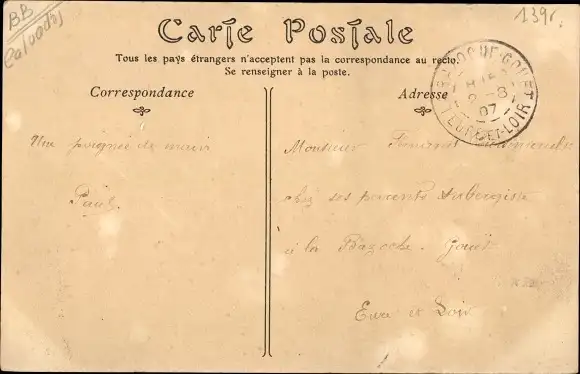 BB
Calvados
139c.
Carte Postale
Tous les pays étrangers n'acceptent pas la correspondance au recto.
Se renseigner à la poste.
Correspondance
Adresse
GOUET
2 -8
07
EURE-ET-LOIR
Une poignée de main
Paul
Monsieur
chez ses parents Aubergiste
à la Bazoche. Gouët
Eure et Loir